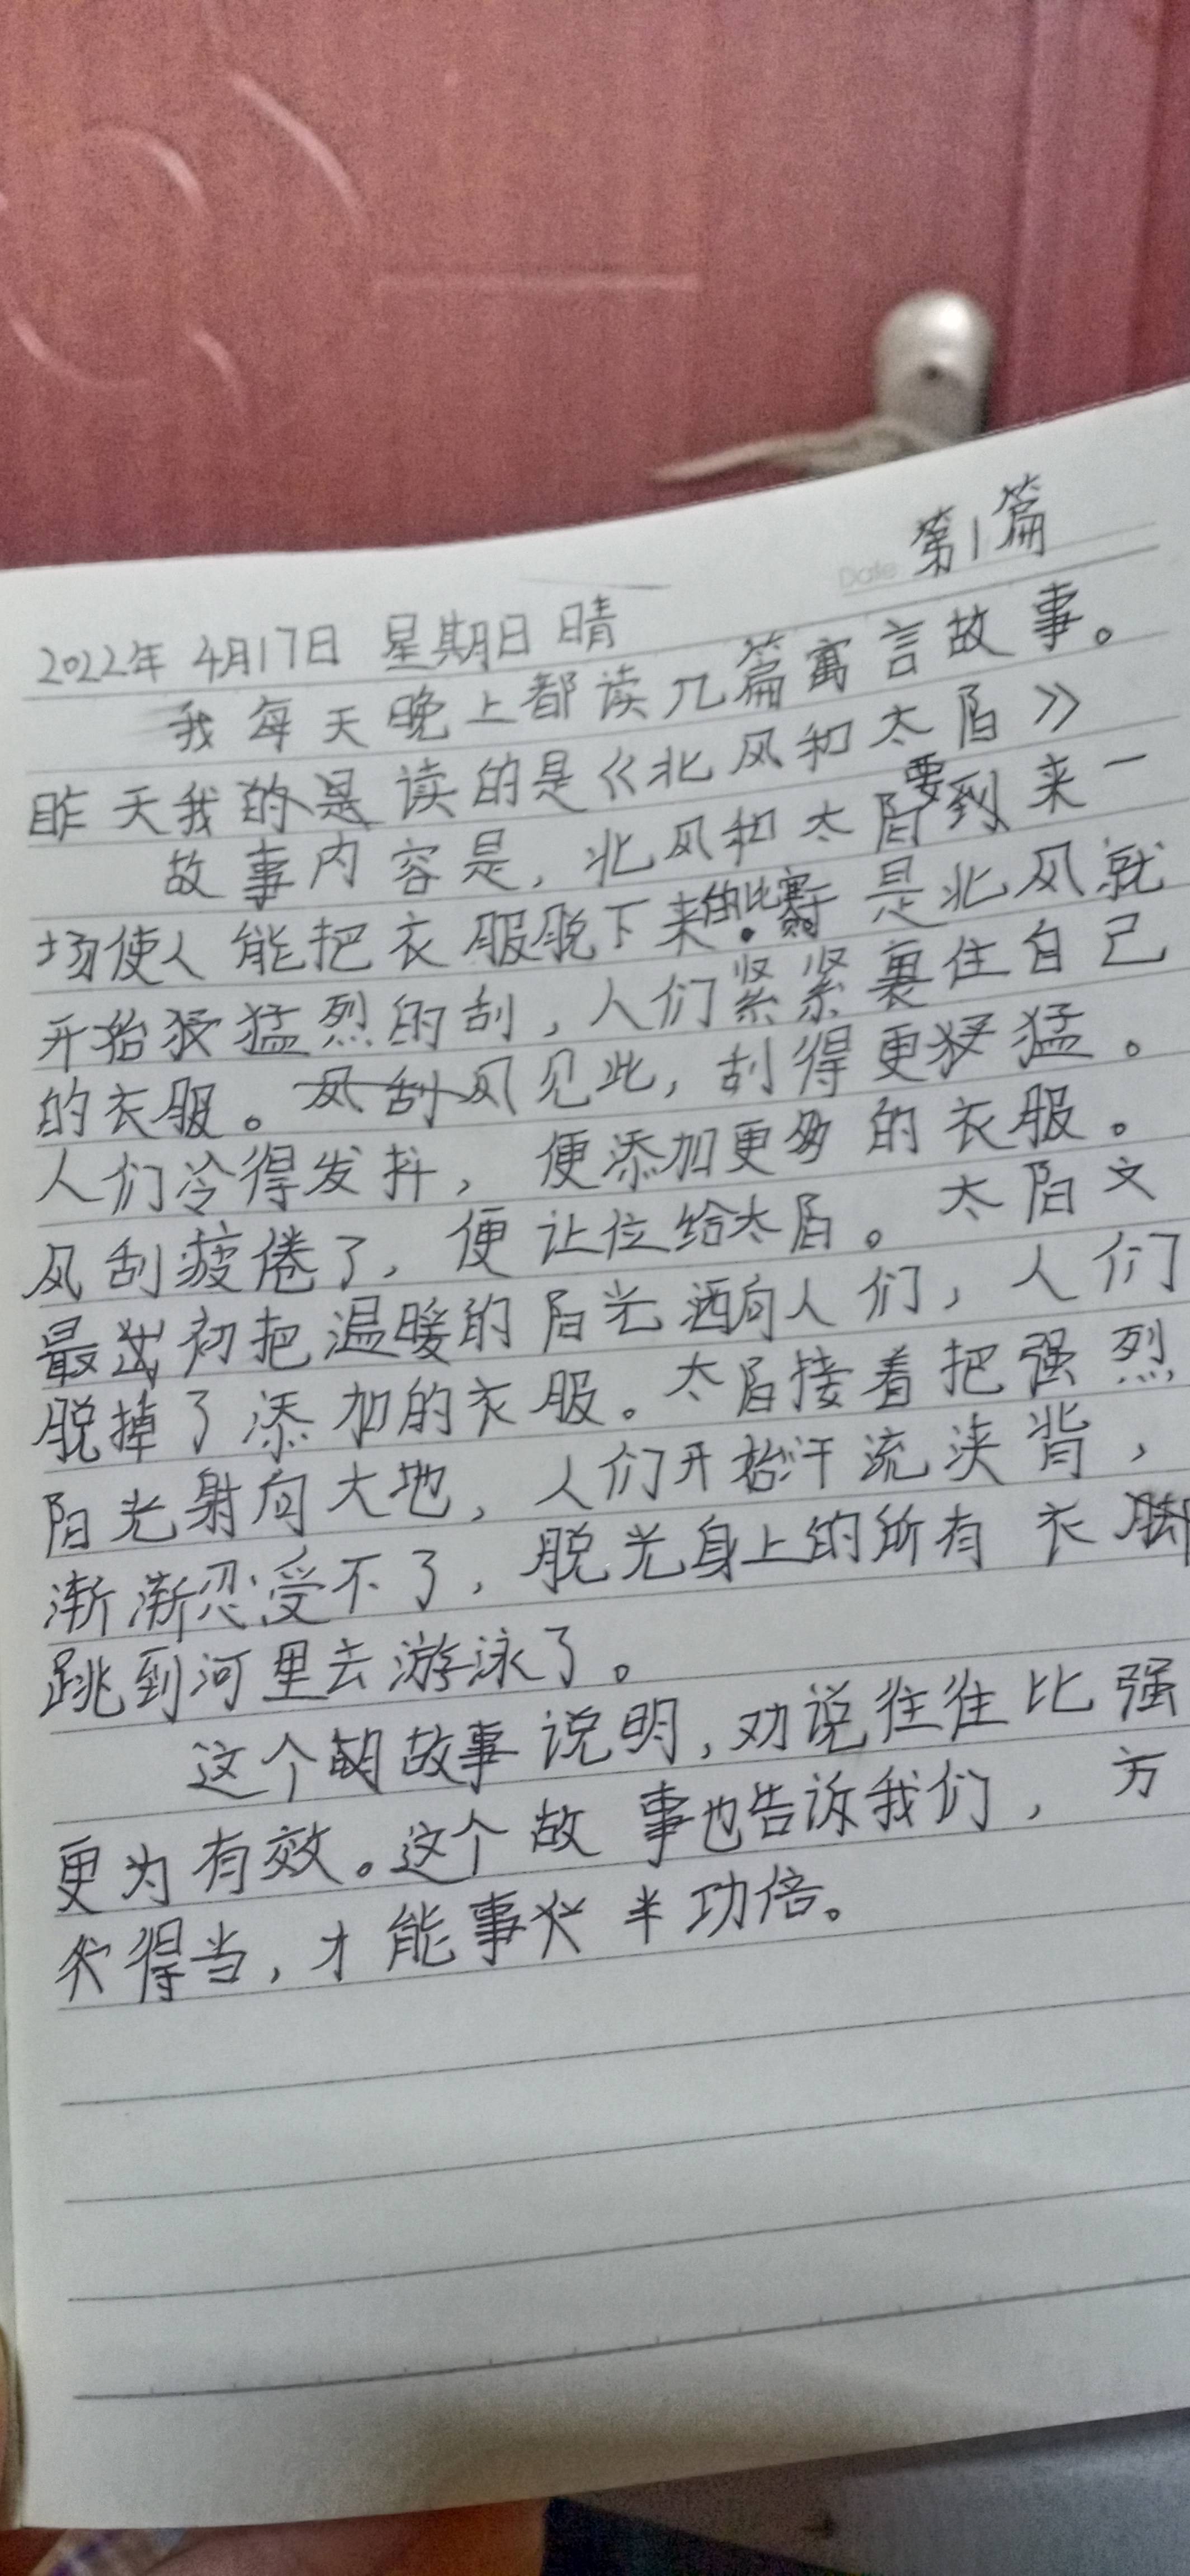 第1篇
Date
2022年 4月17日 星期日 晴
我每天晚上都读几篇寓言故事。
昨天我的是读的是《北风和太阳》
故事内容是，北风和太阳要到来一
场使人能把衣服脱下来的比赛。于是北风就
开始猛烈的刮，人们紧紧裹住自己
的衣服。风刮风见此，刮得更猛。
人们冷得发抖，便添加更多的衣服。
风刮疲倦了，便让位给太阳。太阳
最初把温暖的阳光洒向人们，人们
脱掉了添加的衣服。太阳接着把强烈
阳光射向大地，人们开始汗流浃背，
渐渐忍受不了，脱光身上的所有衣
跳到河里去游泳了。
这个故事说明，劝说往往比强
更为有效。这个故事也告诉我们，方
得当，才能事半功倍。